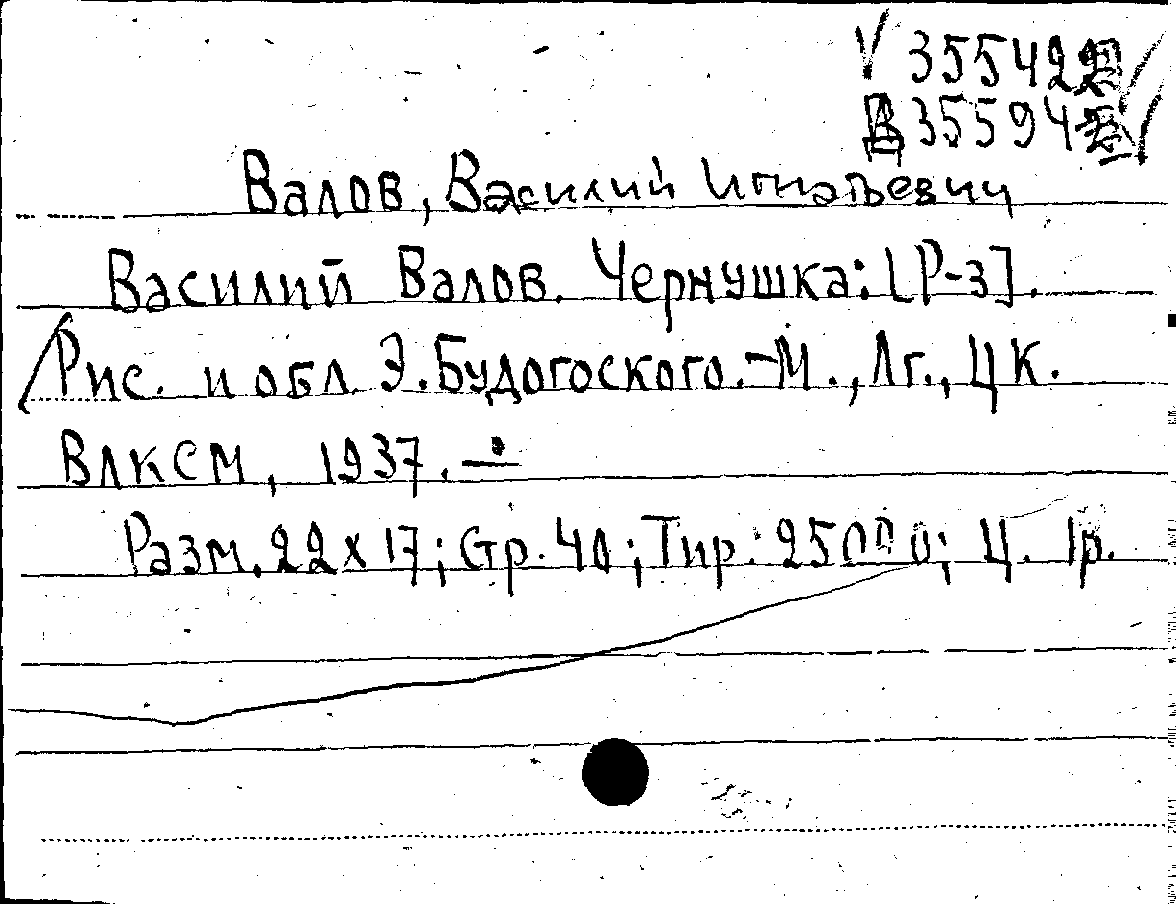 V 35542
35594
Валов, Василий Игнатьевич
Василий Валов. Чернушка: [Р-з].
Рис. и обл. Э. Будогоского. – М., Лг., ЦК.
ВЛКСМ, 1937. –
Разм. 22х17; Стр. 40; Тир. 25000; Ц. 1р.